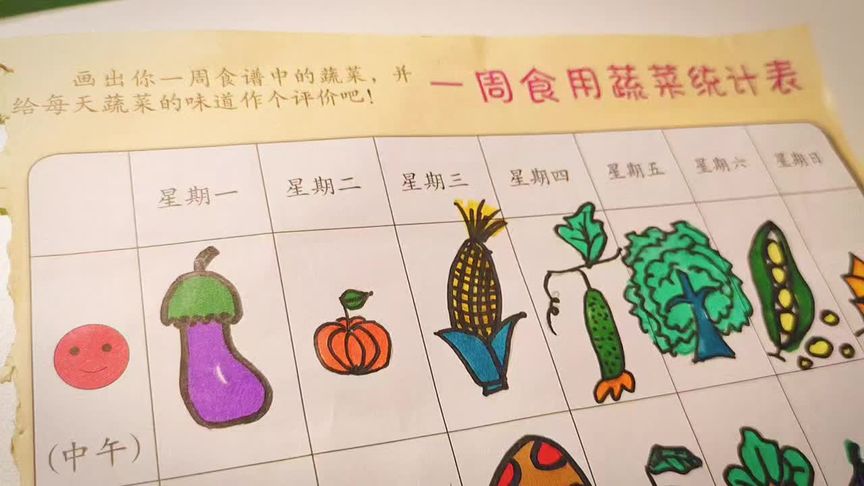 画出你一周食谱中的蔬菜，并
给每天蔬菜的味道作个评价吧！
一周食用蔬菜统计表
星期一 星期二 星期三 星期四 星期五 星期六 星期日
(中午)